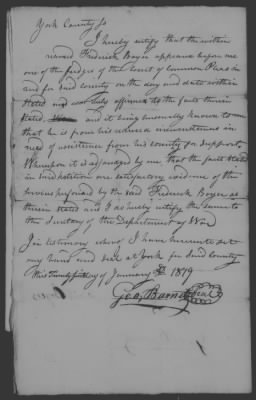 York County Ss
I hereby certify that the within
named Frederick Boyer appeared before me
one of the Judges of the Court of Common Pleas in
and for said County on the day and date within
stated and was duly affirmed to the facts therein
stated, and it being personally known to me
that he is from his reduced circumstances in
need of assistance from his country for support
Whereupon it is adjudged by me that the facts stated
in said petition are satisfactory evidence of the
services performed by the said Frederick Boyer as
therein stated and I do hereby certify the same to
the Secretary of the Department of War
In testimony whereof I have hereunto set
my hand and seal at York for said County
this Twenty day of January 1819
Geo, Barnitz Seal